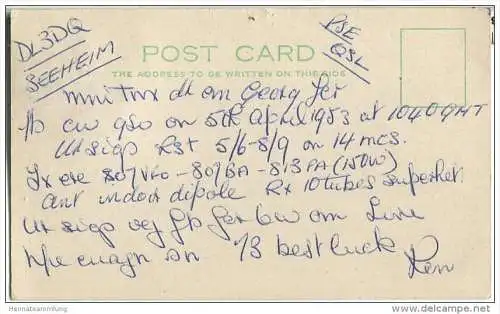 DL3DQ
SEEHEIM
PSE
QSL
POST CARD
THE ADDRESS TO BE WRITTEN ON THIS SIDE
mni tnx dr om Georg fer
fb cw qso on 5th April 1953 at 1040 GMT
Ur sigs Rst 5/6-8/9 on 14 mcs.
Tx ere 807 VFO - 807BA - 813PA (150W)
Ant indoor dipole Rx 10 tubes superhet
Ur sigs vej fb fer 6w om
hpe cuagn sn 73 best luck
Ken
Heimatsammlung
delcampe.net